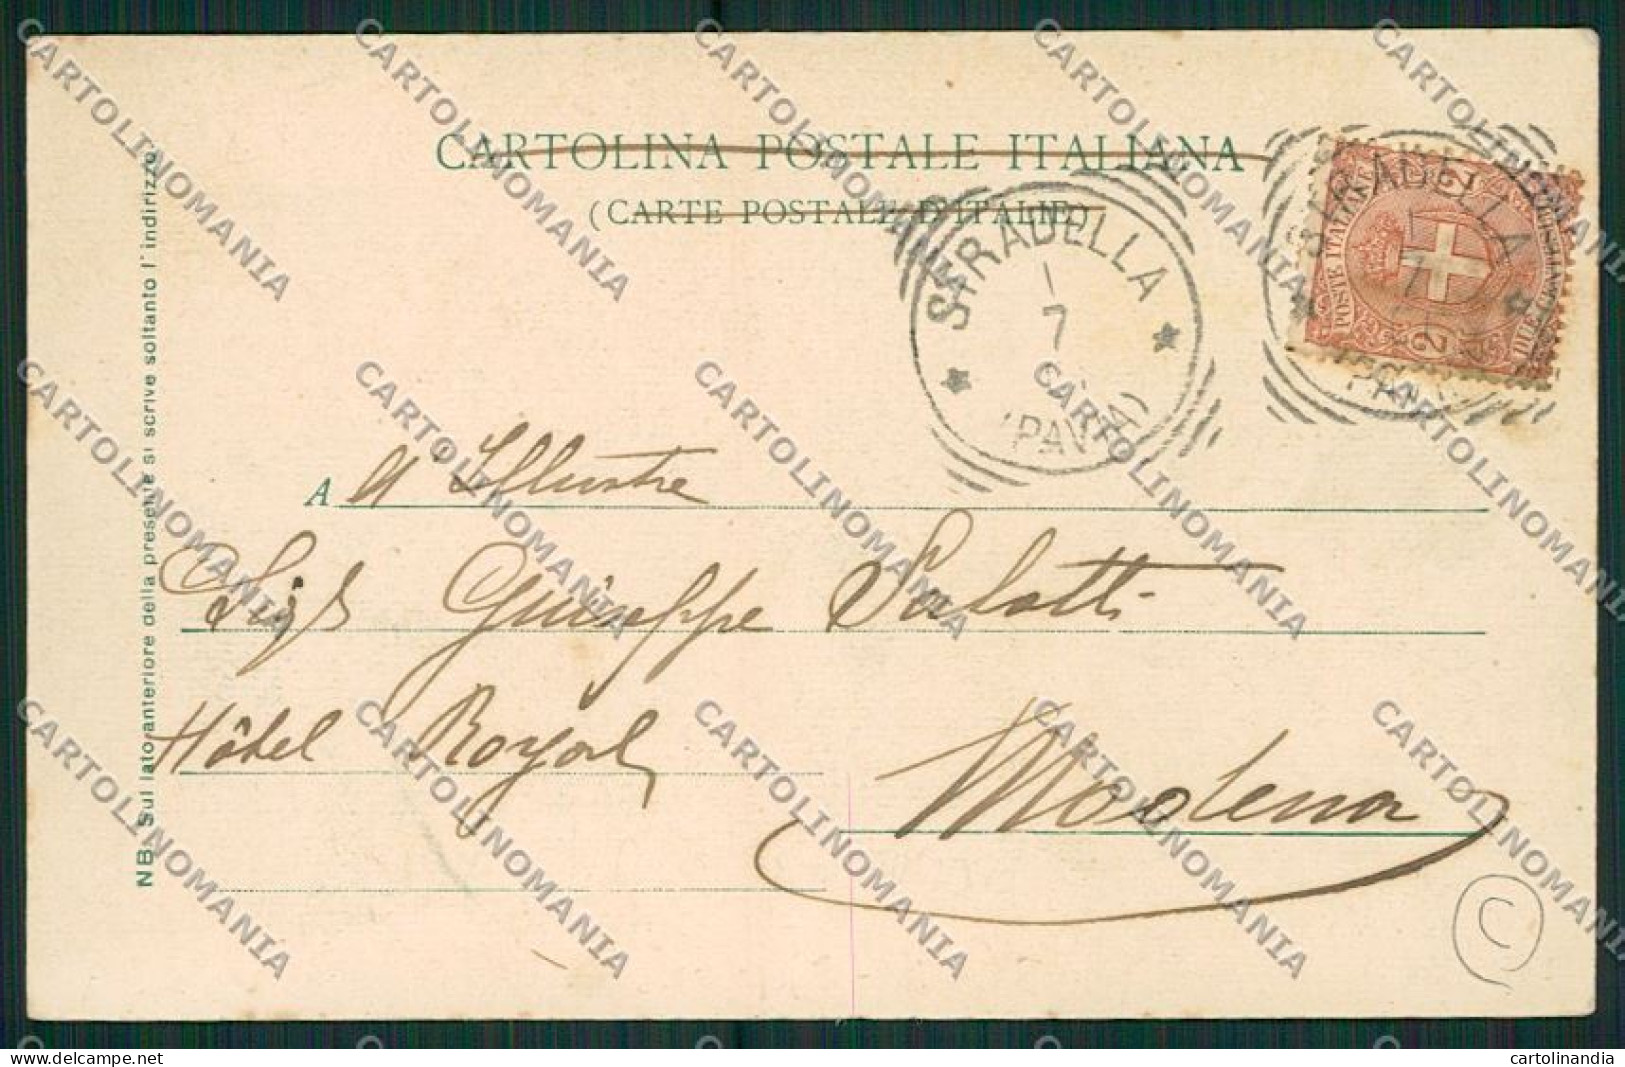 CARTOLINA POSTALE ITALIANA
(CARTE POSTALE D'ITALIE)
STRADELLA
1
7
(PAVIA)
STRADELLA
POSTE ITALIANE
2
A All' Illustre
Sigr Giuseppe Salotti
Hôtel Royal
Modena
NB. Sul lato anteriore della presente si scrive soltanto l'indirizzo
C
CARTOLINOMANIA
cartolinandia